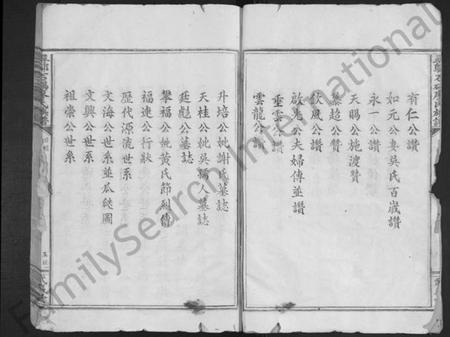 有仁公讚
如元公妻吳氏百歲讚
永一公讚
天賜公施渡贊
泰超公贊
飲風公讚
啟先公夫婦傳並讚
重雲公讚
雲龍公讚
升培公妣謝氏墓誌
天桂公妣吳孺人墓誌
廷彪公墓誌
攀福公妣黃氏節烈傳
福連公行狀
歷代源流世系
文海公世系並瓜瓞圖
文興公世系
祖崇公世系
FamilySearch International